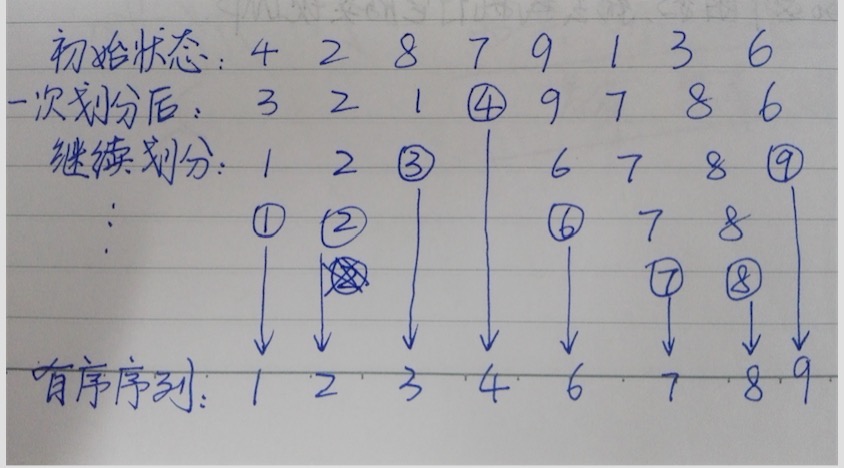 初始状态: 4 2 8 7 9 1 3 6
一次划分后: 3 2 1 ④ 9 7 8 6
继续划分: 1 2 ③ 6 7 8 ⑨
⋮ ① ② ⑥ 7 8
⑦ ⑧
有序序列: 1 2 3 4 6 7 8 9